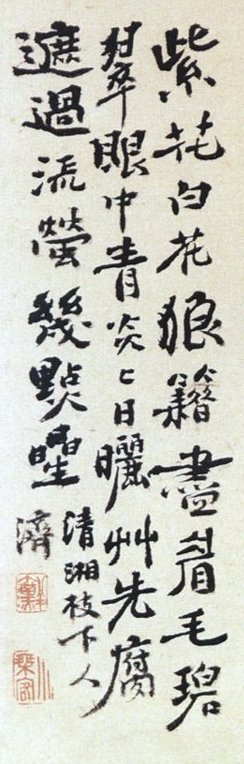 紫花白花狼籍盡眉毛碧
翠眼中青炎〻日曬艸先腐
遮過流螢幾點暒
清湘枝下人
濟